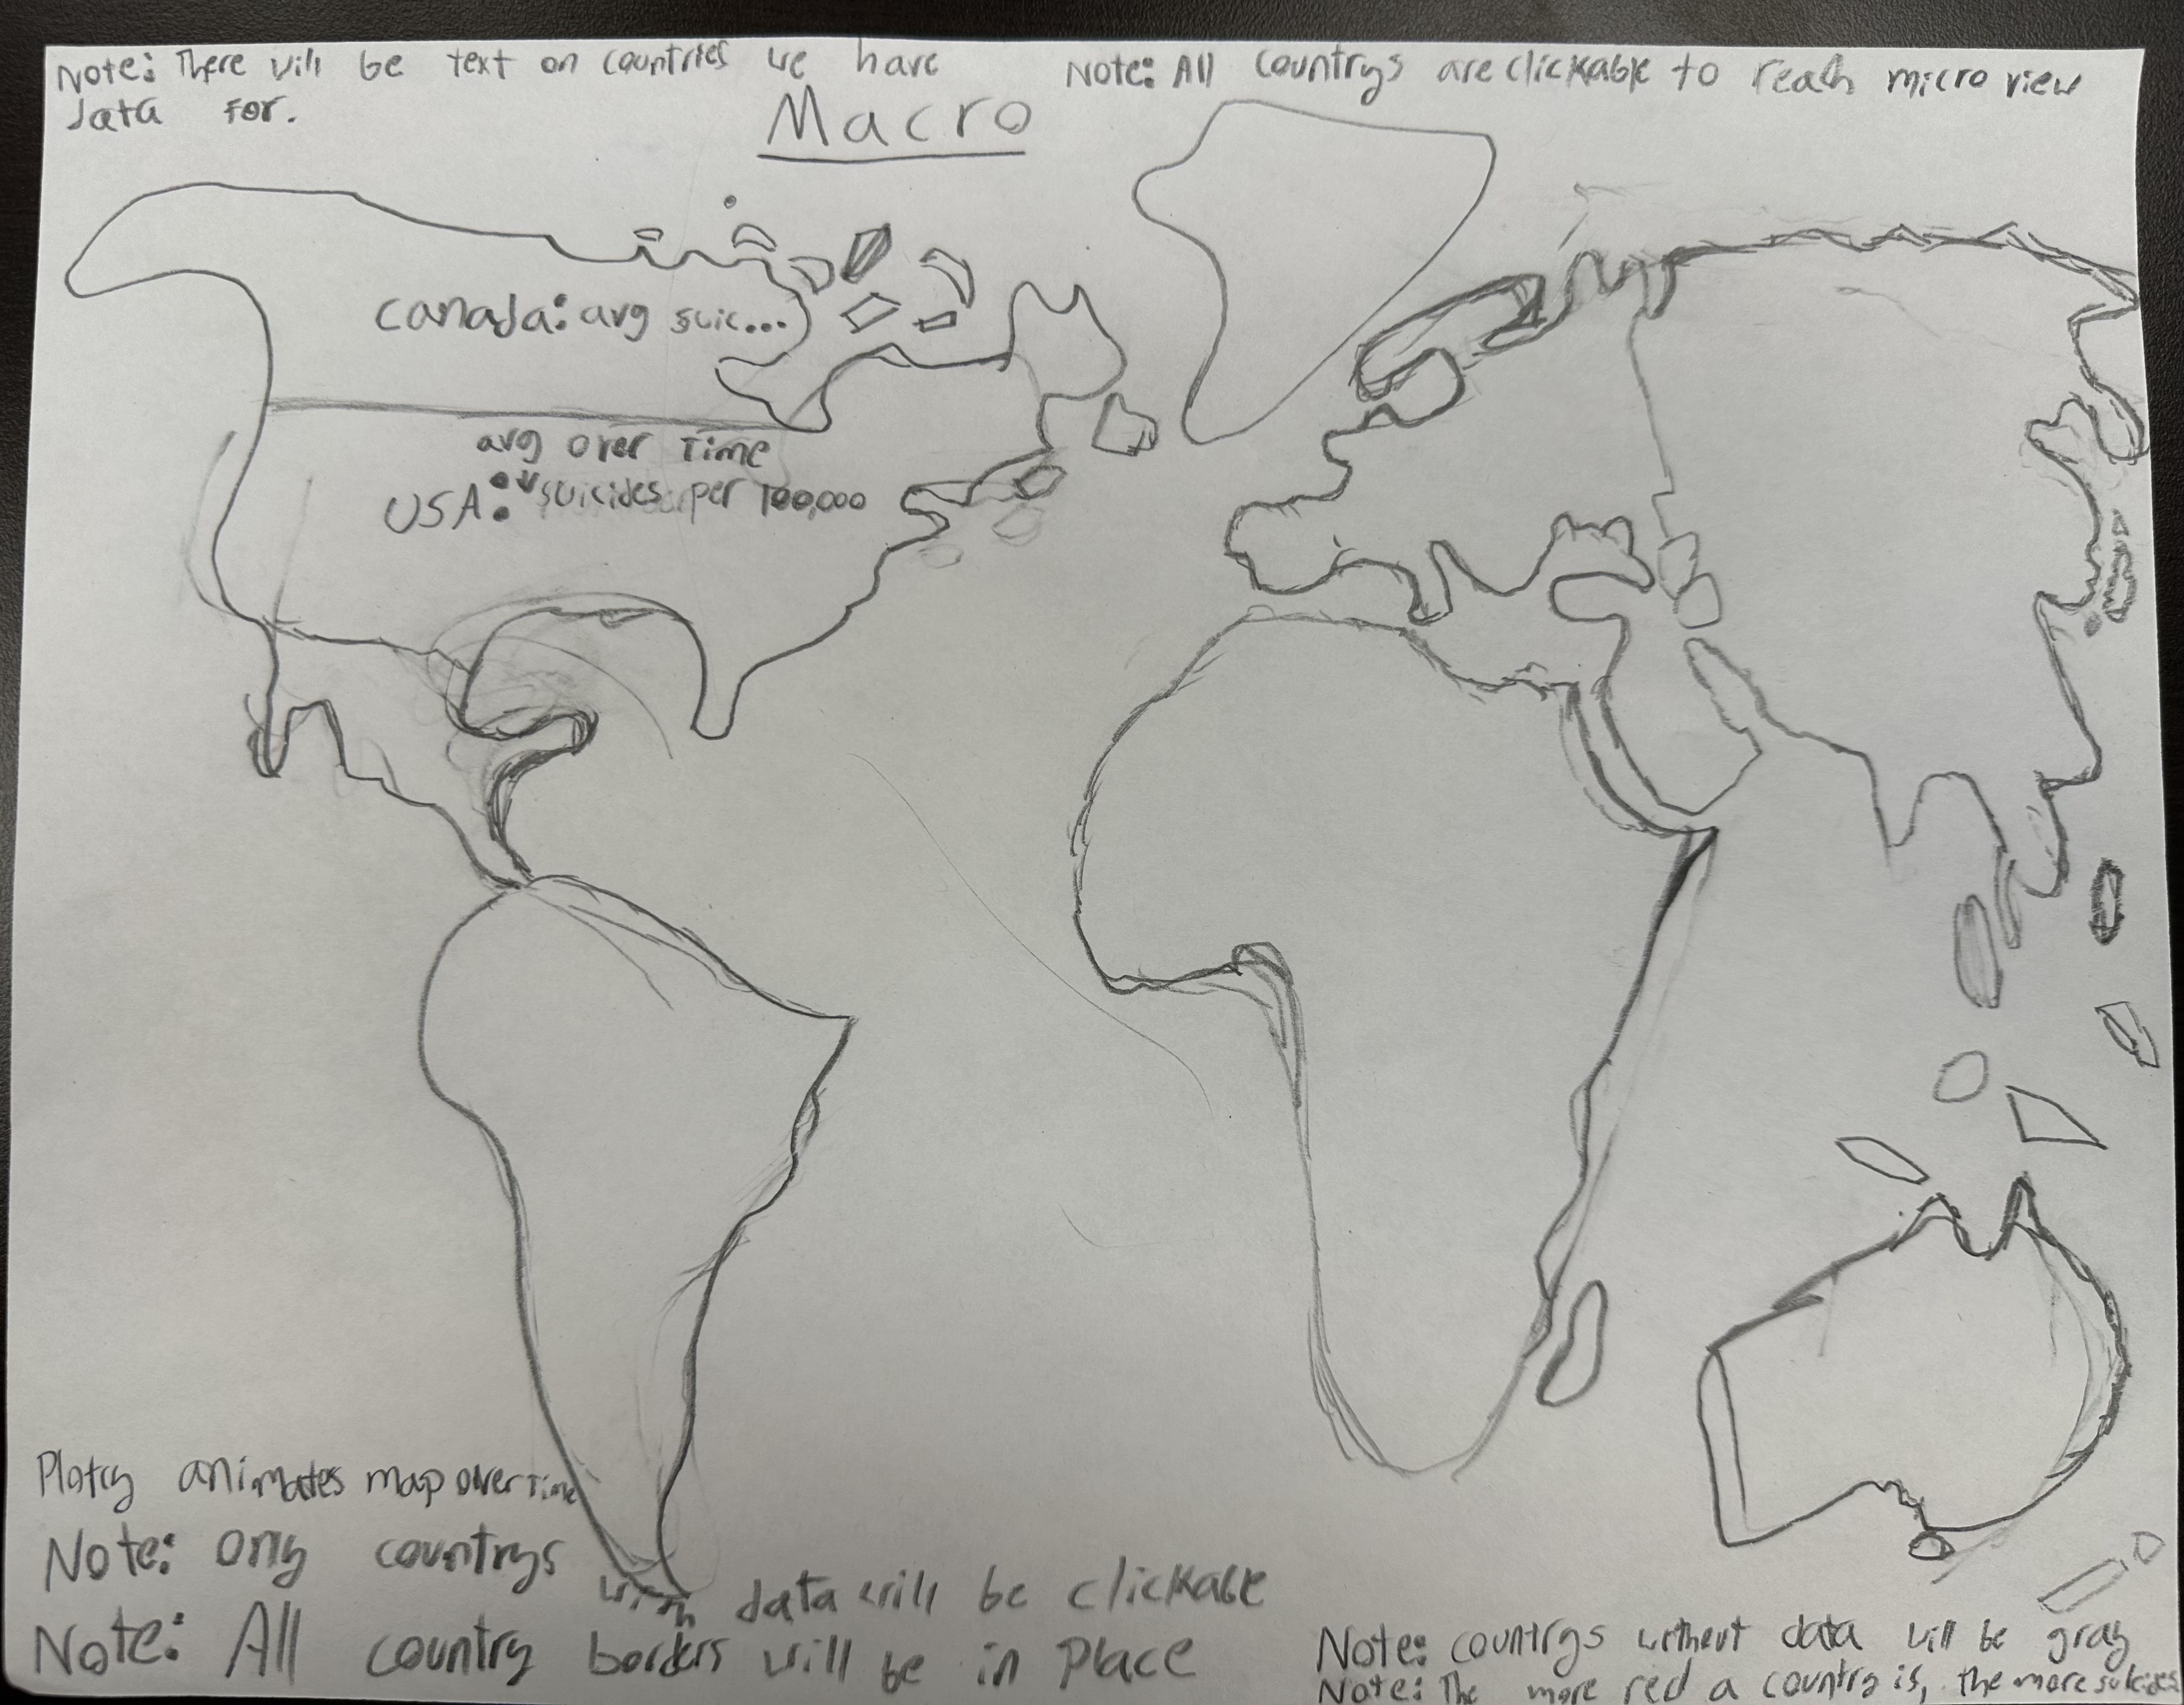 Note: There will be text on countries we have
data for.
Note: All countrys are clickable to reach micro view
Macro
Canada: avg suic...
avg over Time
USA: suicides per 100,000
Plotly animates map over Time
Note: Only countrys with data will be clickable
Note: All country borders will be in Place
Note: countrys without data will be gray
Note: The more red a country is, the more suicides